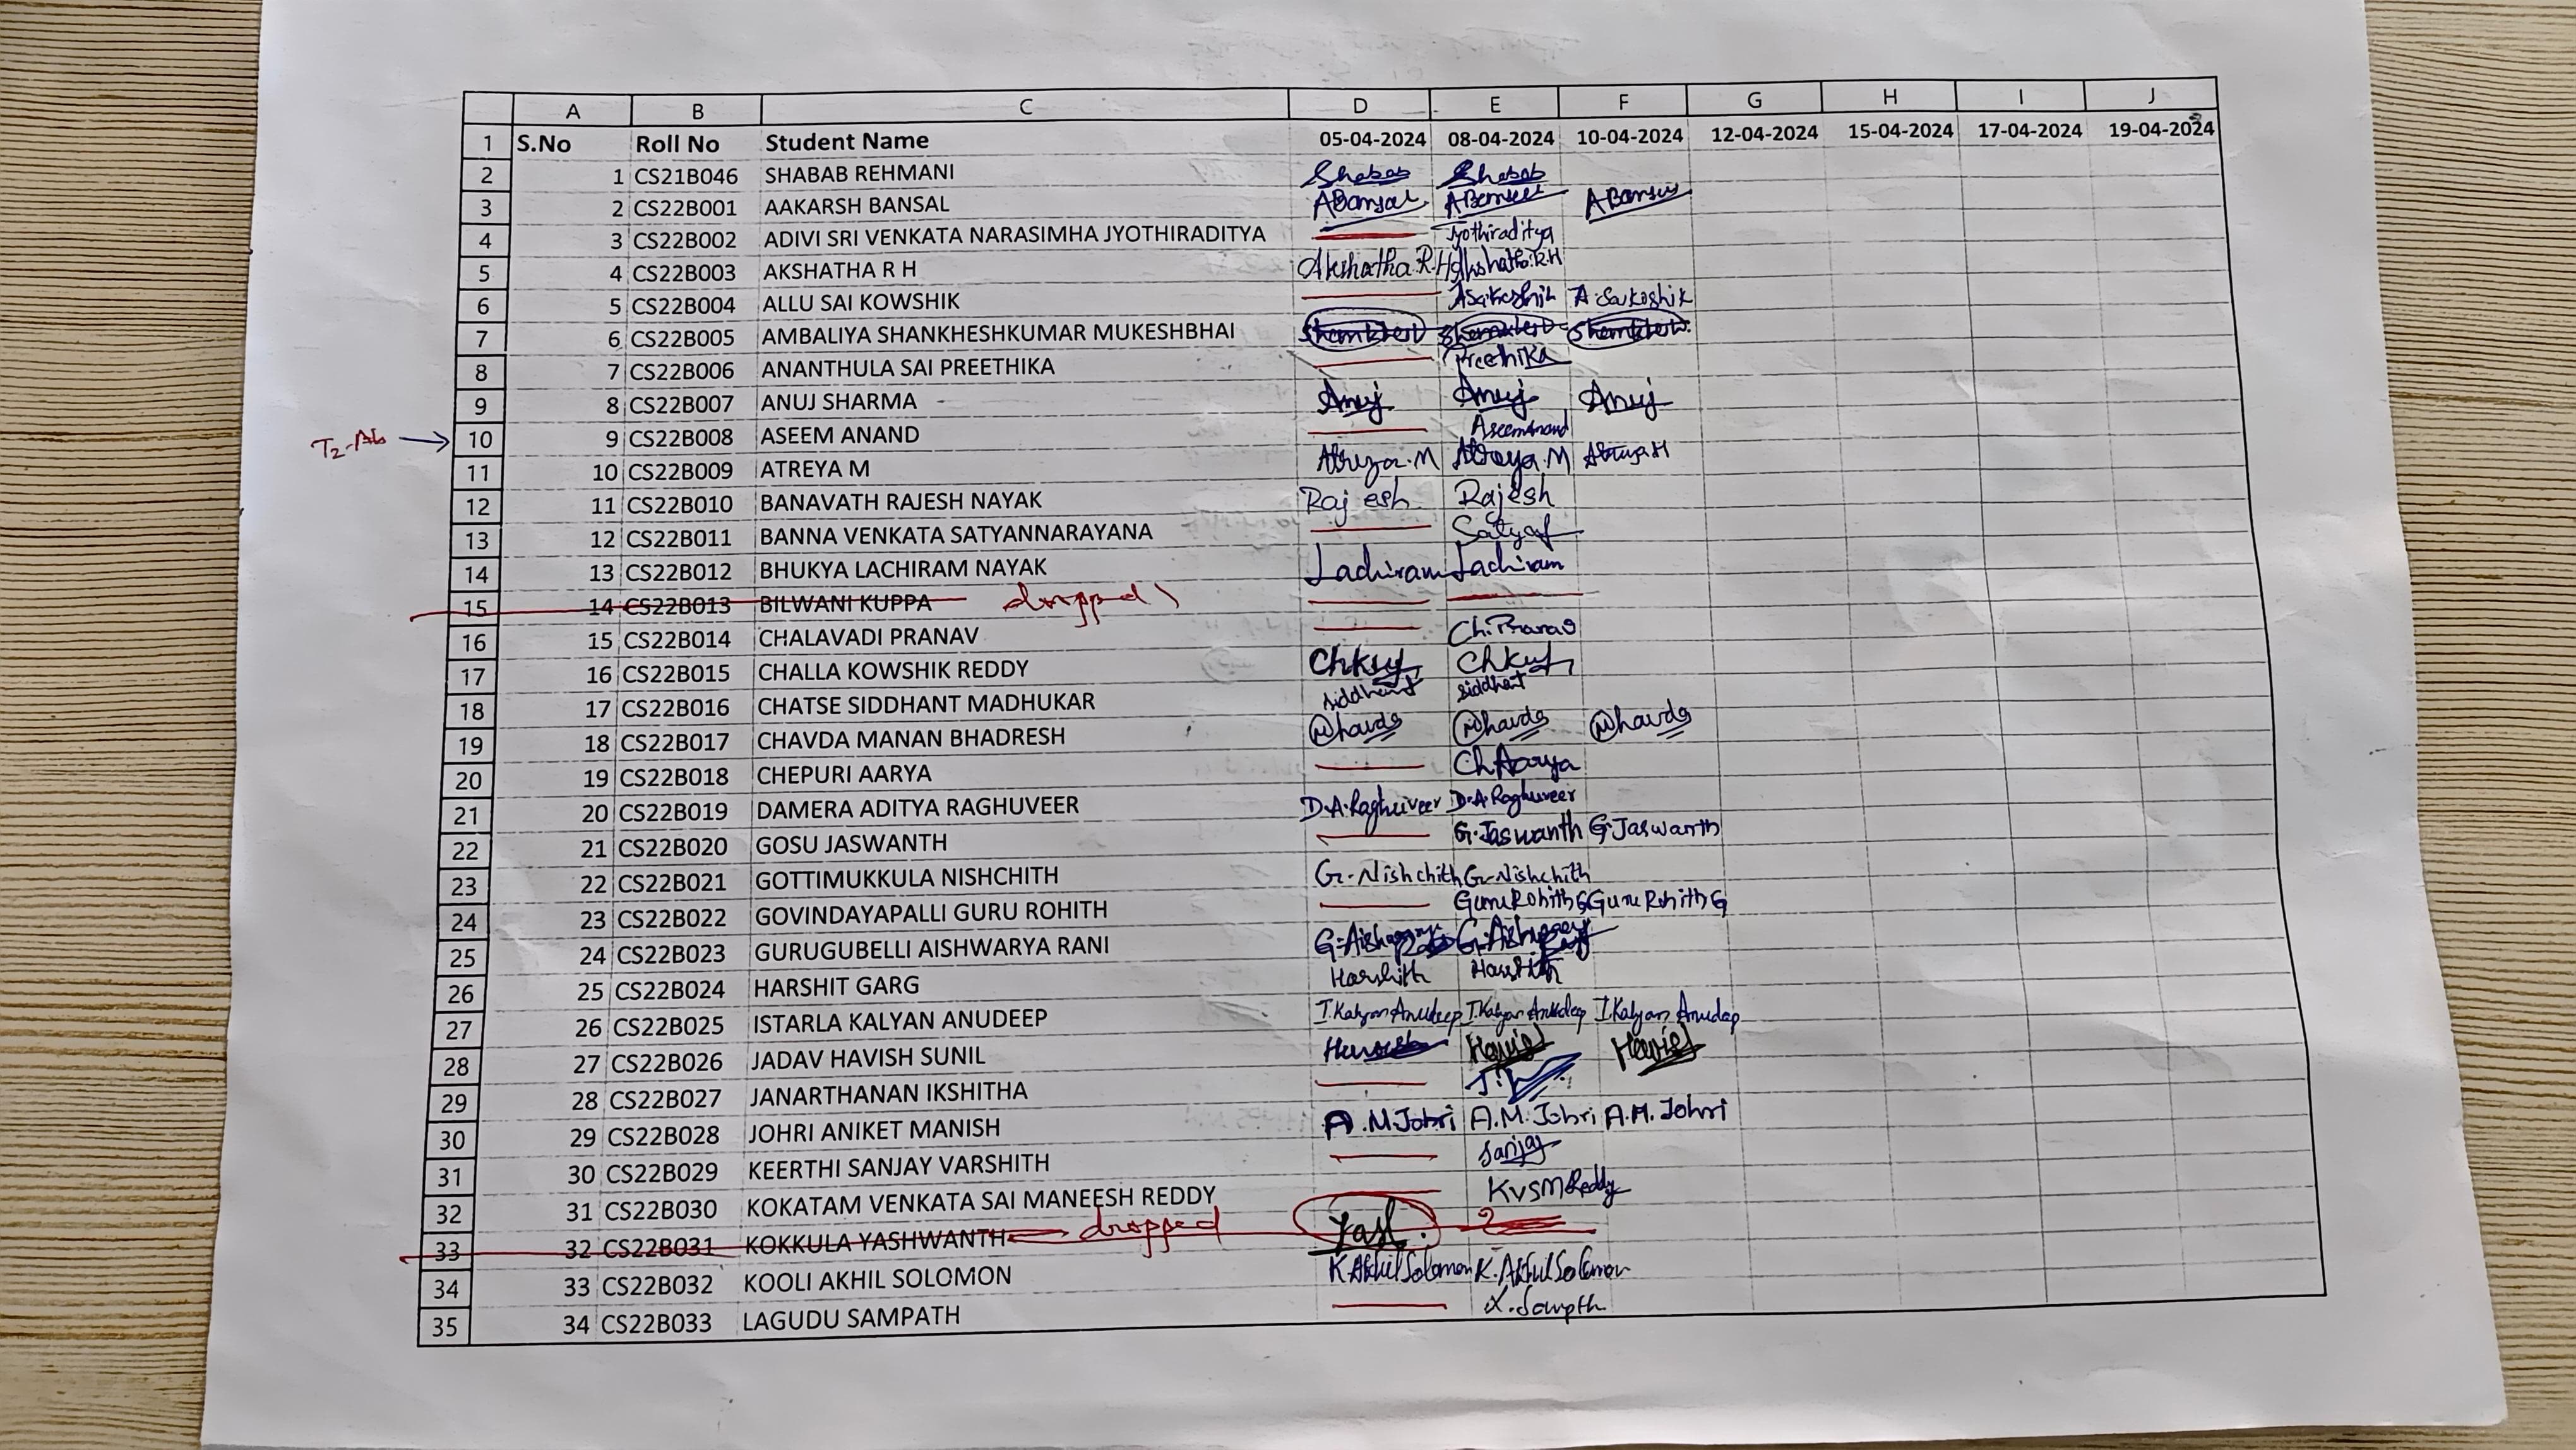 A B C D E F G H I J
1 S.No Roll No Student Name 05-04-2024 08-04-2024 10-04-2024 12-04-2024 15-04-2024 17-04-2024 19-04-2024
2 1 CS21B046 SHABAB REHMANI Shabab Shabab
3 2 CS22B001 AAKARSH BANSAL ABansal ABansal ABansal
4 3 CS22B002 ADIVI SRI VENKATA NARASIMHA JYOTHIRADITYA Jyothiraditya
5 4 CS22B003 AKSHATHA R H Akshatha.R.H Akshatha.R.H
6 5 CS22B004 ALLU SAI KOWSHIK A.Saikoshik
7 6 CS22B005 AMBALIYA SHANKHESHKUMAR MUKESHBHAI
8 7 CS22B006 ANANTHULA SAI PREETHIKA Preethika
9 8 CS22B007 ANUJ SHARMA Anuj Anuj Anuj
T2-Ab → 10 9 CS22B008 ASEEM ANAND AseemAnand
11 10 CS22B009 ATREYA M Atreya.M Atreya.M Atreya M
12 11 CS22B010 BANAVATH RAJESH NAYAK Rajesh Rajesh
13 12 CS22B011 BANNA VENKATA SATYANNARAYANA
14 13 CS22B012 BHUKYA LACHIRAM NAYAK Lachiram Lachiram
15 14 CS22B013 BILWANI KUPPA dropped
16 15 CS22B014 CHALAVADI PRANAV Ch.Pranav
17 16 CS22B015 CHALLA KOWSHIK REDDY
18 17 CS22B016 CHATSE SIDDHANT MADHUKAR Siddhant Siddhant
19 18 CS22B017 CHAVDA MANAN BHADRESH
20 19 CS22B018 CHEPURI AARYA Ch Aarya
21 20 CS22B019 DAMERA ADITYA RAGHUVEER D.A.Raghuveer D.A.Raghuveer
22 21 CS22B020 GOSU JASWANTH G.Jaswanth G.Jaswanth
23 22 CS22B021 GOTTIMUKKULA NISHCHITH G.Nishchith G.Nishchith
24 23 CS22B022 GOVINDAYAPALLI GURU ROHITH Guru Rohith G Guru Rohith G
25 24 CS22B023 GURUGUBELLI AISHWARYA RANI
26 25 CS22B024 HARSHIT GARG Harshith
27 26 CS22B025 ISTARLA KALYAN ANUDEEP I.Kalyan Anudeep I.Kalyan Anudeep I.Kalyan Anudeep
28 27 CS22B026 JADAV HAVISH SUNIL Havish Havish
29 28 CS22B027 JANARTHANAN IKSHITHA
30 29 CS22B028 JOHRI ANIKET MANISH A.M.Johri A.M.Johri A.M.Johri
31 30 CS22B029 KEERTHI SANJAY VARSHITH Sanjay
32 31 CS22B030 KOKATAM VENKATA SAI MANEESH REDDY KVSMReddy
33 32 CS22B031 KOKKULA YASHWANTH dropped Yash
34 33 CS22B032 KOOLI AKHIL SOLOMON K.Akhil Solomon K.Akhil Solomon
35 34 CS22B033 LAGUDU SAMPATH L.Sampth